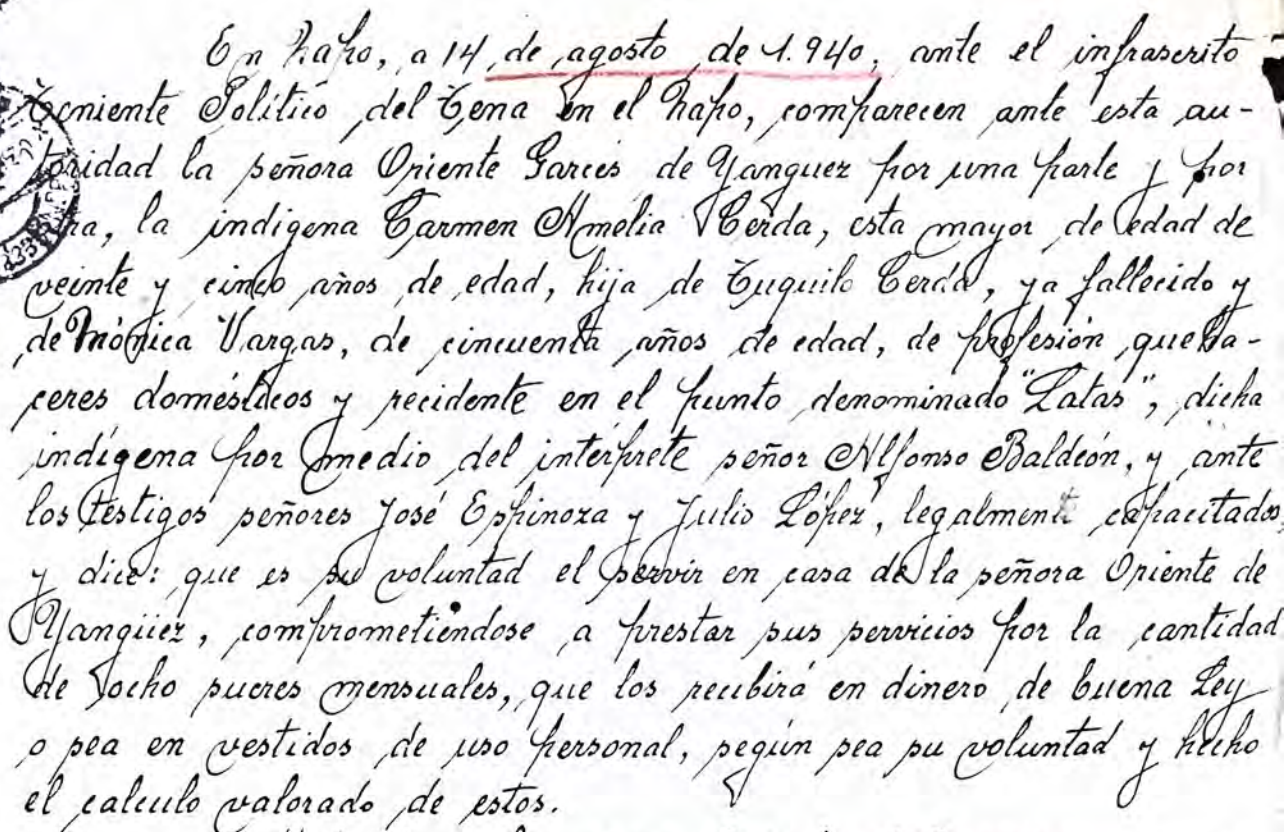 En Napo, a 14 de agosto de 1.940, ante el infrascrito
Teniente Político del Tena en el Napo, comparecen ante esta au-
toridad la señora Oriente Garcés de Yanguez por una parte y por
otra, la indígena Carmen Amelia Cerda, esta mayor de edad de
veinte y cinco años de edad, hija de Cuquilo Cerda, ya fallecido y
de Mónica Vargas, de cincuenta años de edad, de profesión queha-
ceres domésticos y recidente en el punto denominado "Latas", dicha
indígena por medio del intérprete señor Alfonso Baldeón, y ante
los testigos señores José Esphinoza y Julio López, legalmente capacitados,
y dice: que es su voluntad el servir en casa de la señora Oriente de
Yangüez, comprometiéndose a prestar sus servicios por la cantidad
de ocho sucres mensuales, que los recibirá en dinero de buena Ley
o sea en vestidos de uso personal, según sea su voluntad y hecho
el calculo valorado de estos.